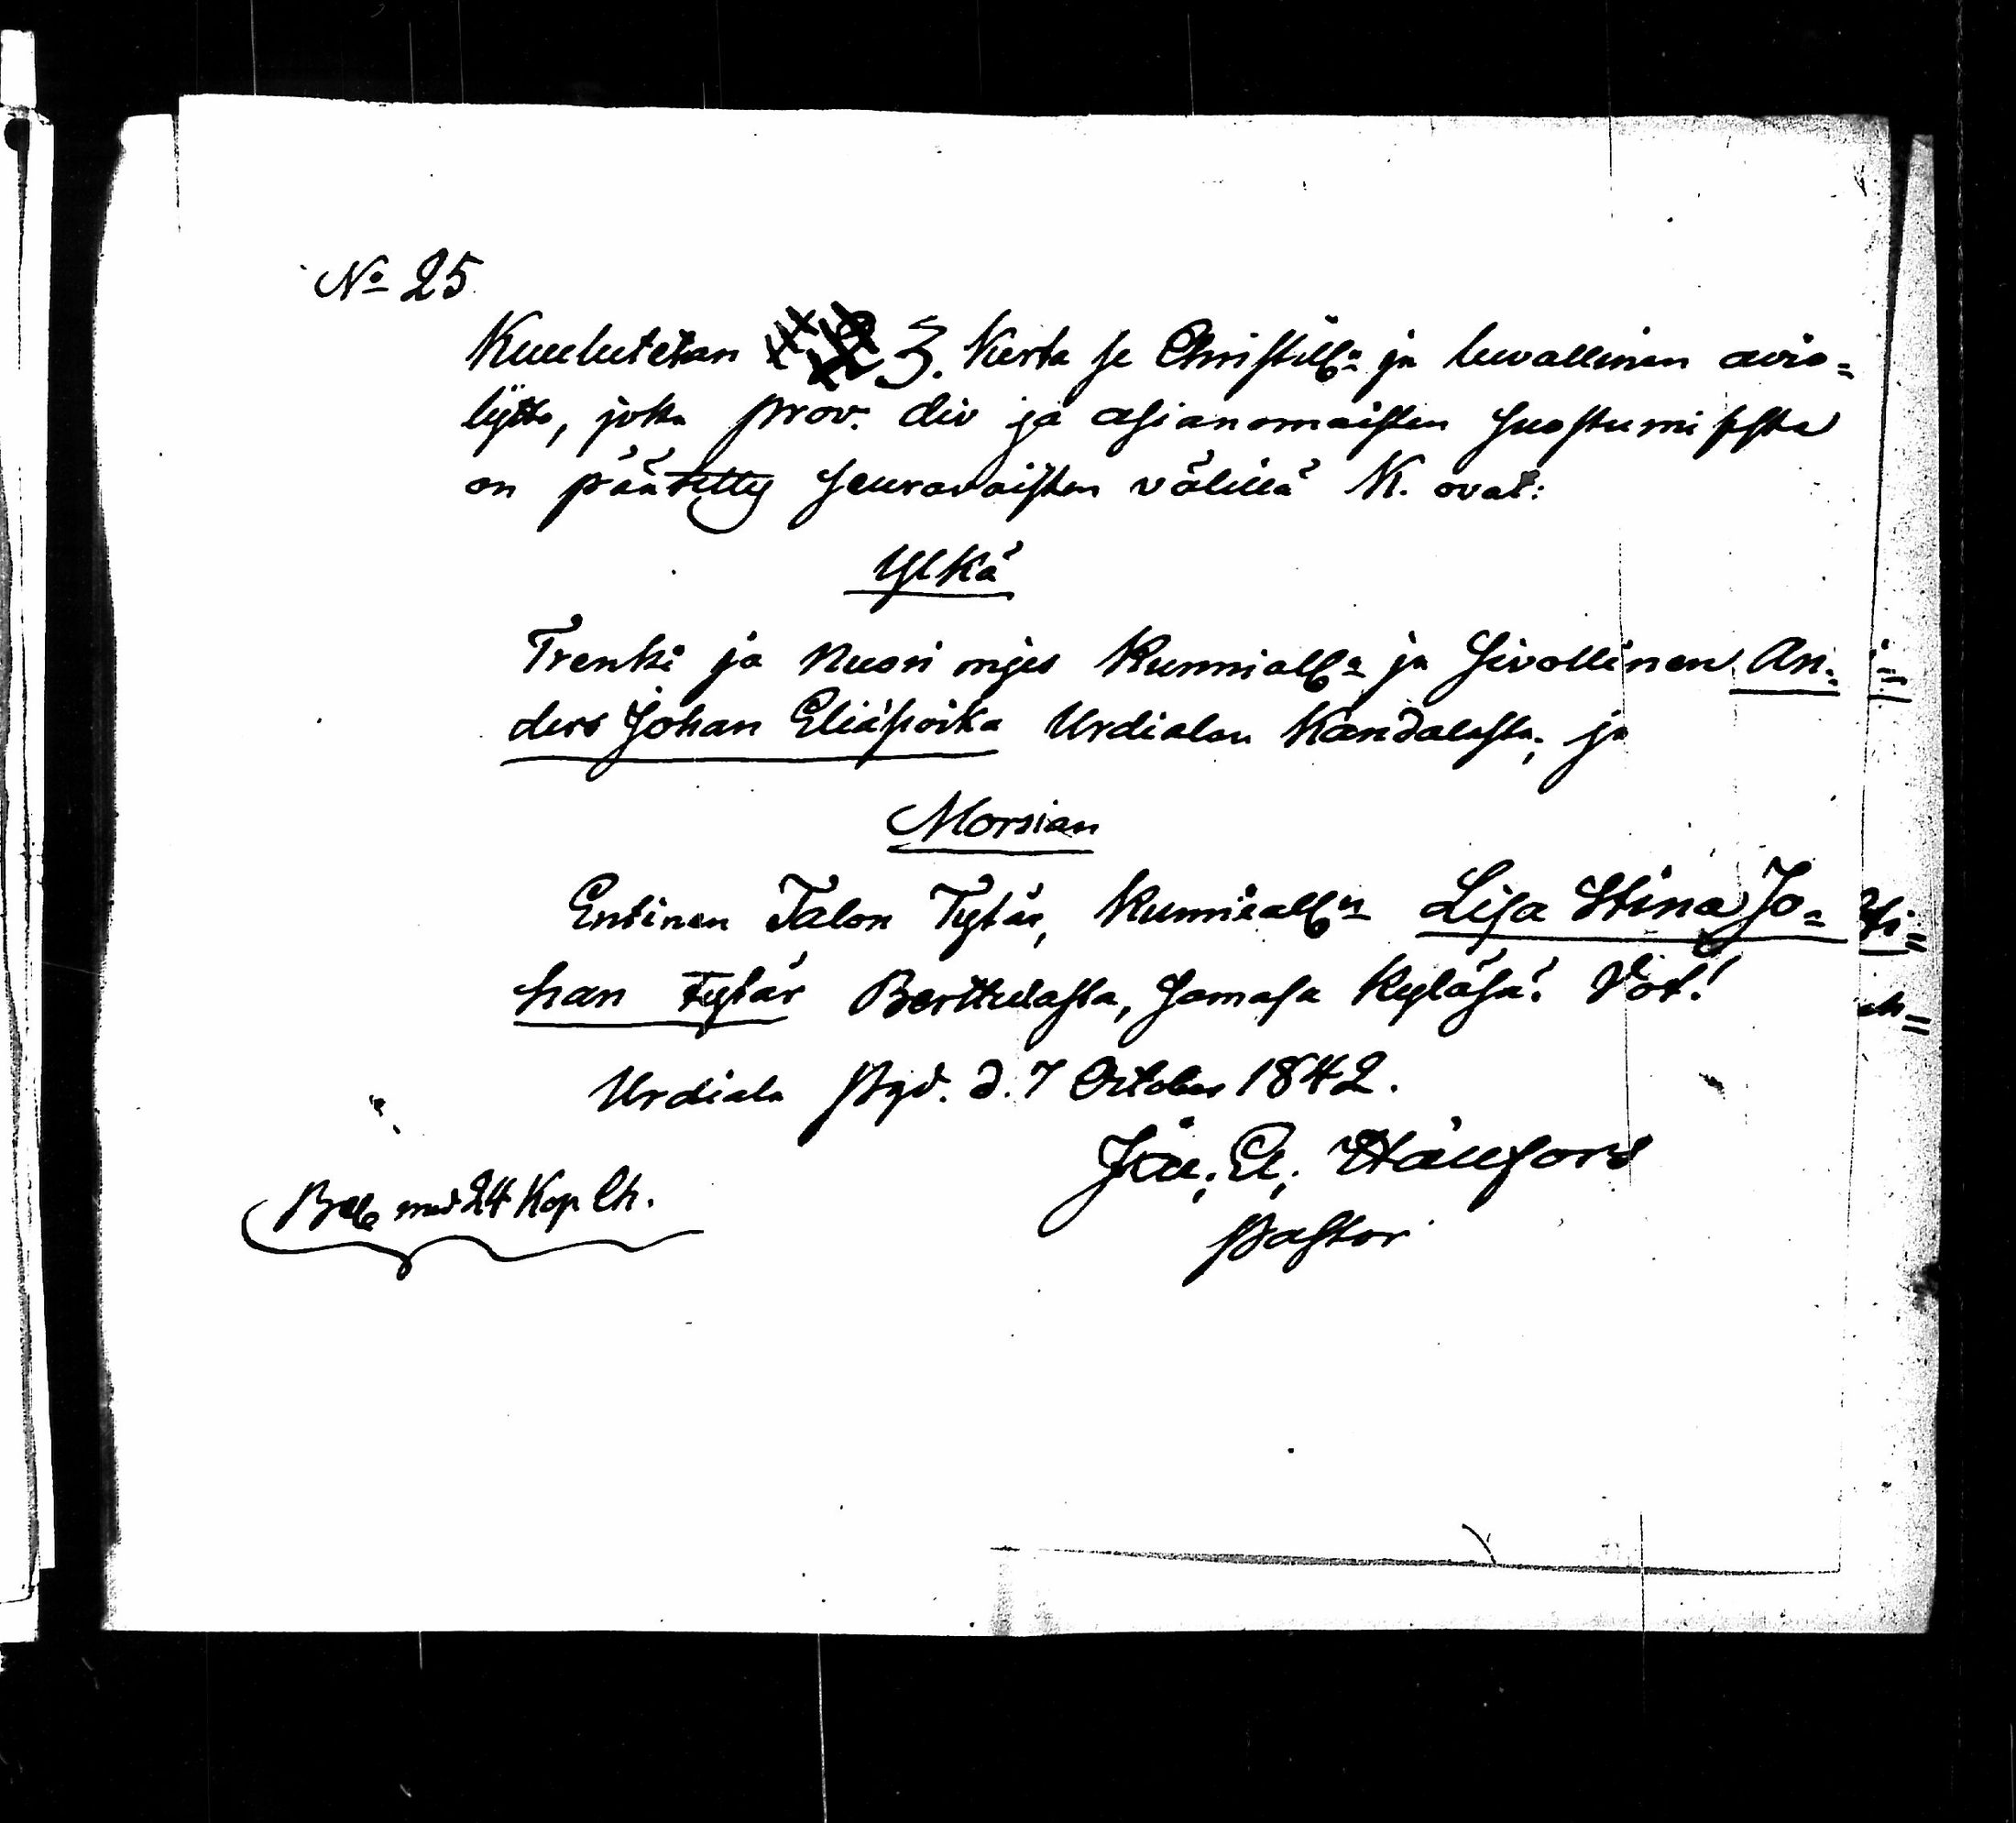 No 25
Kuulutetan 3. Kerta se Christilln ja luvallinen avio=
lijtto, joka prov. div ja asianomaisten suostumisesta
on päätetty seuravaisten välillä N. ovat:
Ylkä
Trenki ja nuori mjes Kunnialln ja Sivollinen An=
ders Johan Eliäspoika Urdialan Kandalasta; ja
Morsian
Entinen Talon Tytär, Kunnialln Lisa Stina Jo=
han Tytär Berttulasta, Samasa Kyläsä. Vot!
Urdiala Pgd. d. 7 October 1842.
Pastor
med 24 Kop